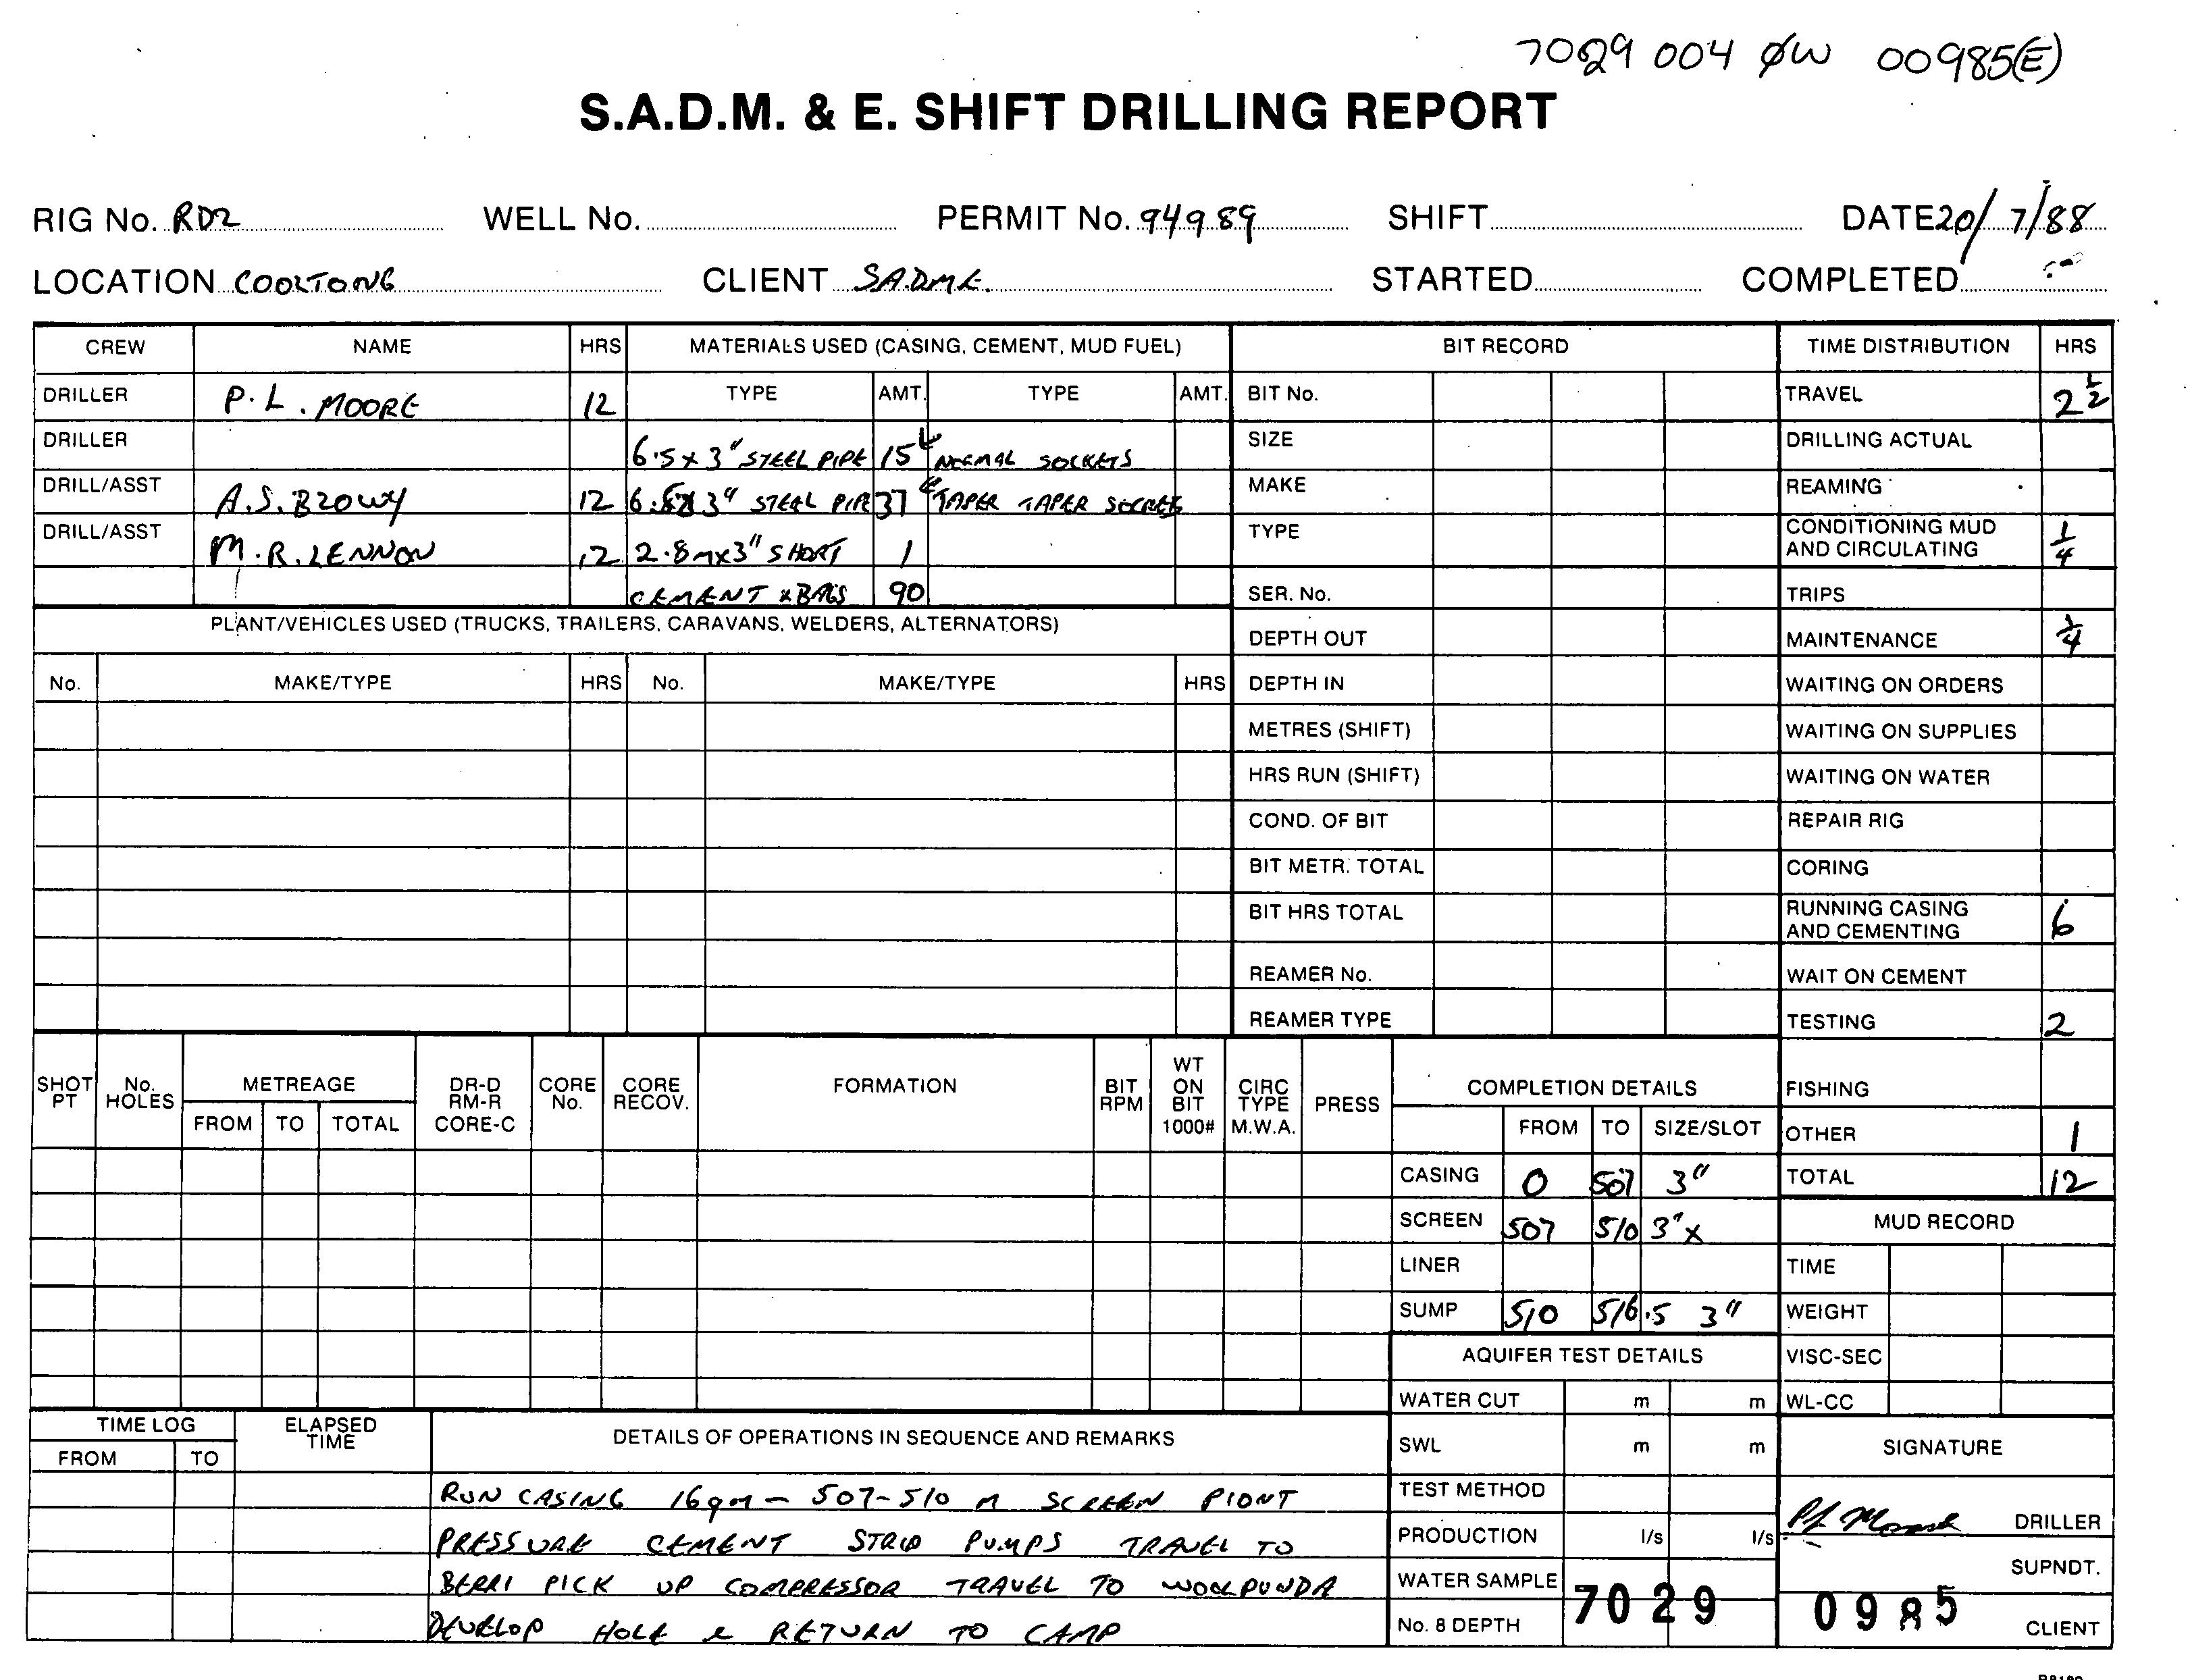 7029 004 ØW 00985(E)
S.A.D.M. & E. SHIFT DRILLING REPORT
RIG No. RD2 WELL No. PERMIT No. 94989 SHIFT DATE 20/7/88
LOCATION COOLTONG CLIENT S.A.D.M.E. STARTED COMPLETED
CREW NAME HRS MATERIALS USED (CASING, CEMENT, MUD FUEL) BIT RECORD TIME DISTRIBUTION HRS
DRILLER P. L. MOORE 12 TYPE AMT. TYPE AMT. BIT No. TRAVEL 2 1/2
DRILLER 6.5 x 3" STEEL PIPE 15 NORMAL SOCKETS SIZE DRILLING ACTUAL
DRILL/ASST A.S. 12 3" STEEL 37 TAPER TAPER SOCKETS MAKE REAMING
DRILL/ASST M. R. LENNON 12 2.8m x 3" SHORT 1 TYPE CONDITIONING MUD AND CIRCULATING 1/4
CEMENT x BAGS 90 SER. No. TRIPS
PLANT/VEHICLES USED (TRUCKS, TRAILERS, CARAVANS, WELDERS, ALTERNATORS) DEPTH OUT MAINTENANCE 1/4
No. MAKE/TYPE HRS No. MAKE/TYPE HRS DEPTH IN WAITING ON ORDERS
METRES (SHIFT) WAITING ON SUPPLIES
HRS RUN (SHIFT) WAITING ON WATER
COND. OF BIT REPAIR RIG
BIT METR. TOTAL CORING
BIT HRS TOTAL RUNNING CASING AND CEMENTING 6
REAMER No. WAIT ON CEMENT
REAMER TYPE TESTING 2
SHOT PT No. HOLES METREAGE DR-D RM-R CORE-C CORE No. CORE RECOV. FORMATION BIT RPM WT ON BIT 1000# CIRC TYPE M.W.A. PRESS COMPLETION DETAILS FISHING
FROM TO TOTAL FROM TO SIZE/SLOT OTHER 1
CASING 0 507 3" TOTAL 12
SCREEN 507 510 3" x MUD RECORD
LINER TIME
SUMP 510 516.5 3" WEIGHT
AQUIFER TEST DETAILS VISC-SEC
WATER CUT m m WL-CC
TIME LOG ELAPSED TIME DETAILS OF OPERATIONS IN SEQUENCE AND REMARKS SWL m m SIGNATURE
FROM TO
RUN CASING 169m - 507-510 m SCREEN PIONT TEST METHOD
PRESSURE CEMENT STRIP PUMPS TRAVEL TO PRODUCTION l/s l/s DRILLER
BERRI PICK UP COMPRESSOR TRAVEL TO WOOLPUNDA WATER SAMPLE SUPNDT.
DEVELOP HOLE & RETURN TO CAMP No. 8 DEPTH 7029 0985 CLIENT